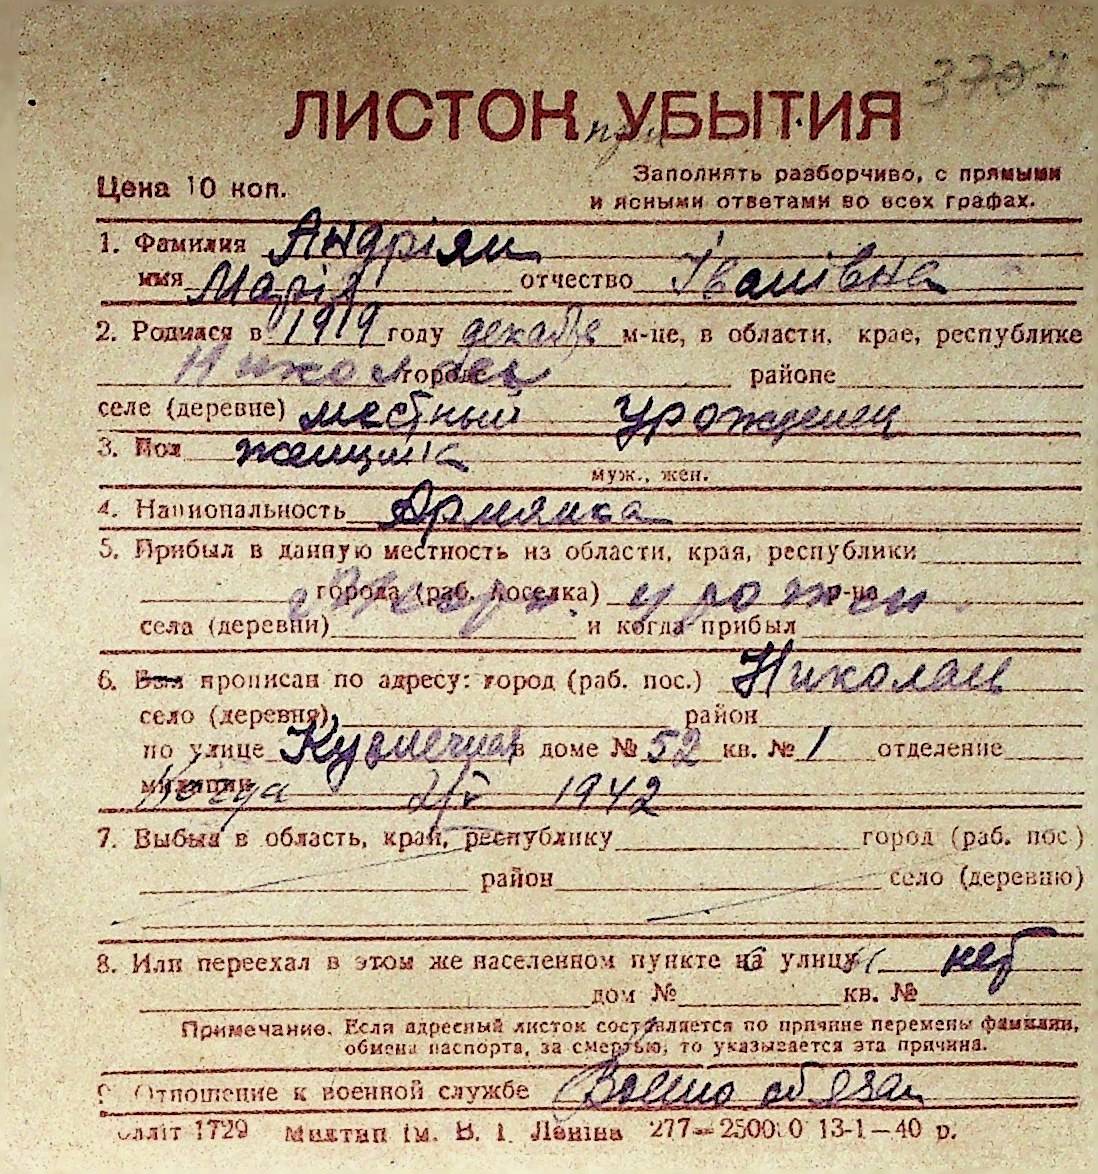 3707
ЛИСТОК при УБЫТИЯ
Цена 10 коп.
Заполнять разборчиво, с прямыми
и ясными ответами во всех графах.
1. Фамилия Андріян
имя Марія отчество Іванівна
2. Родился в 1919 году декабр м-це, в области, крае, республике
Николаев городе районе
селе (деревне) местный урожденец
3. Пол женщина
муж., жен.
4. Национальность Армянка
5. Прибыл в данную местность из области, края, республики
города (раб. поселка) урожен. р-на
села (деревни) и когда прибыл
6. Был прописан по адресу: город (раб. пос.) Николаев
село (деревня) район
по улице Кузнечная в доме № 52 кв. № 1 отделение
милиции Когда 1942
7. Выбыл в область, край, республику город (раб. пос.)
район село (деревню)
8. Или переехал в этом же населенном пункте на улицу нет
дом № кв. №
Примечание. Если адресный листок составляется по причине перемены фамилии,
обмена паспорта, за смертью, то указывается эта причина.
9. Отношение к военной службе Военно обязан
1729 Милтип ім. В. І. Леніна 277—250000 13-1—40 р.